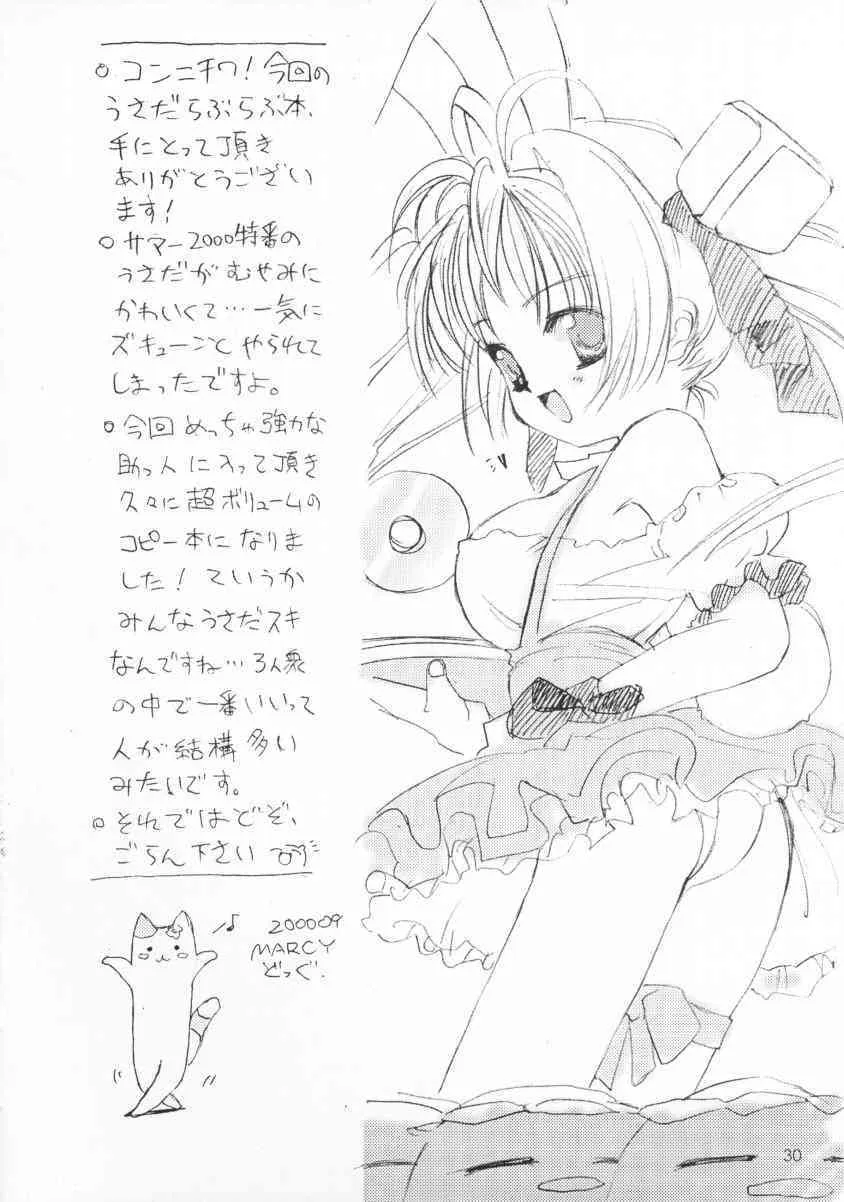 ○ コンニチワ!今回の
うさだらぶらぶ本、
手にとって頂き
ありがとうござい
ます!
○ サマー2000特番の
うさだが むせみに
かわいくて…一気に
ズキューンと やられて
しまったですよ。
○ 今回 めっちゃ強力な
助っ人に入って頂き
久々に超ボリュームの
コピー本になりま
した! ていうか
みんなうさだスキ
なんですね…3人衆
の中で一番いいって
人が結構多い
みたいです。
○ それではどぞ、
ごらん下さい
♪ 200009
MARCY
どっぐ.
30